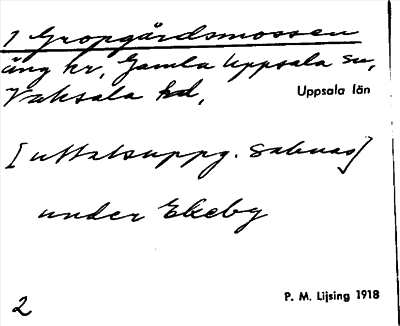 1 Gropgårdsmossen
äng kr, Gamla Uppsala sn,
Vaksala hd, Uppsala län
[uttalsuppg. saknas]
under Ekeby
P. M. Lijsing 1918
2